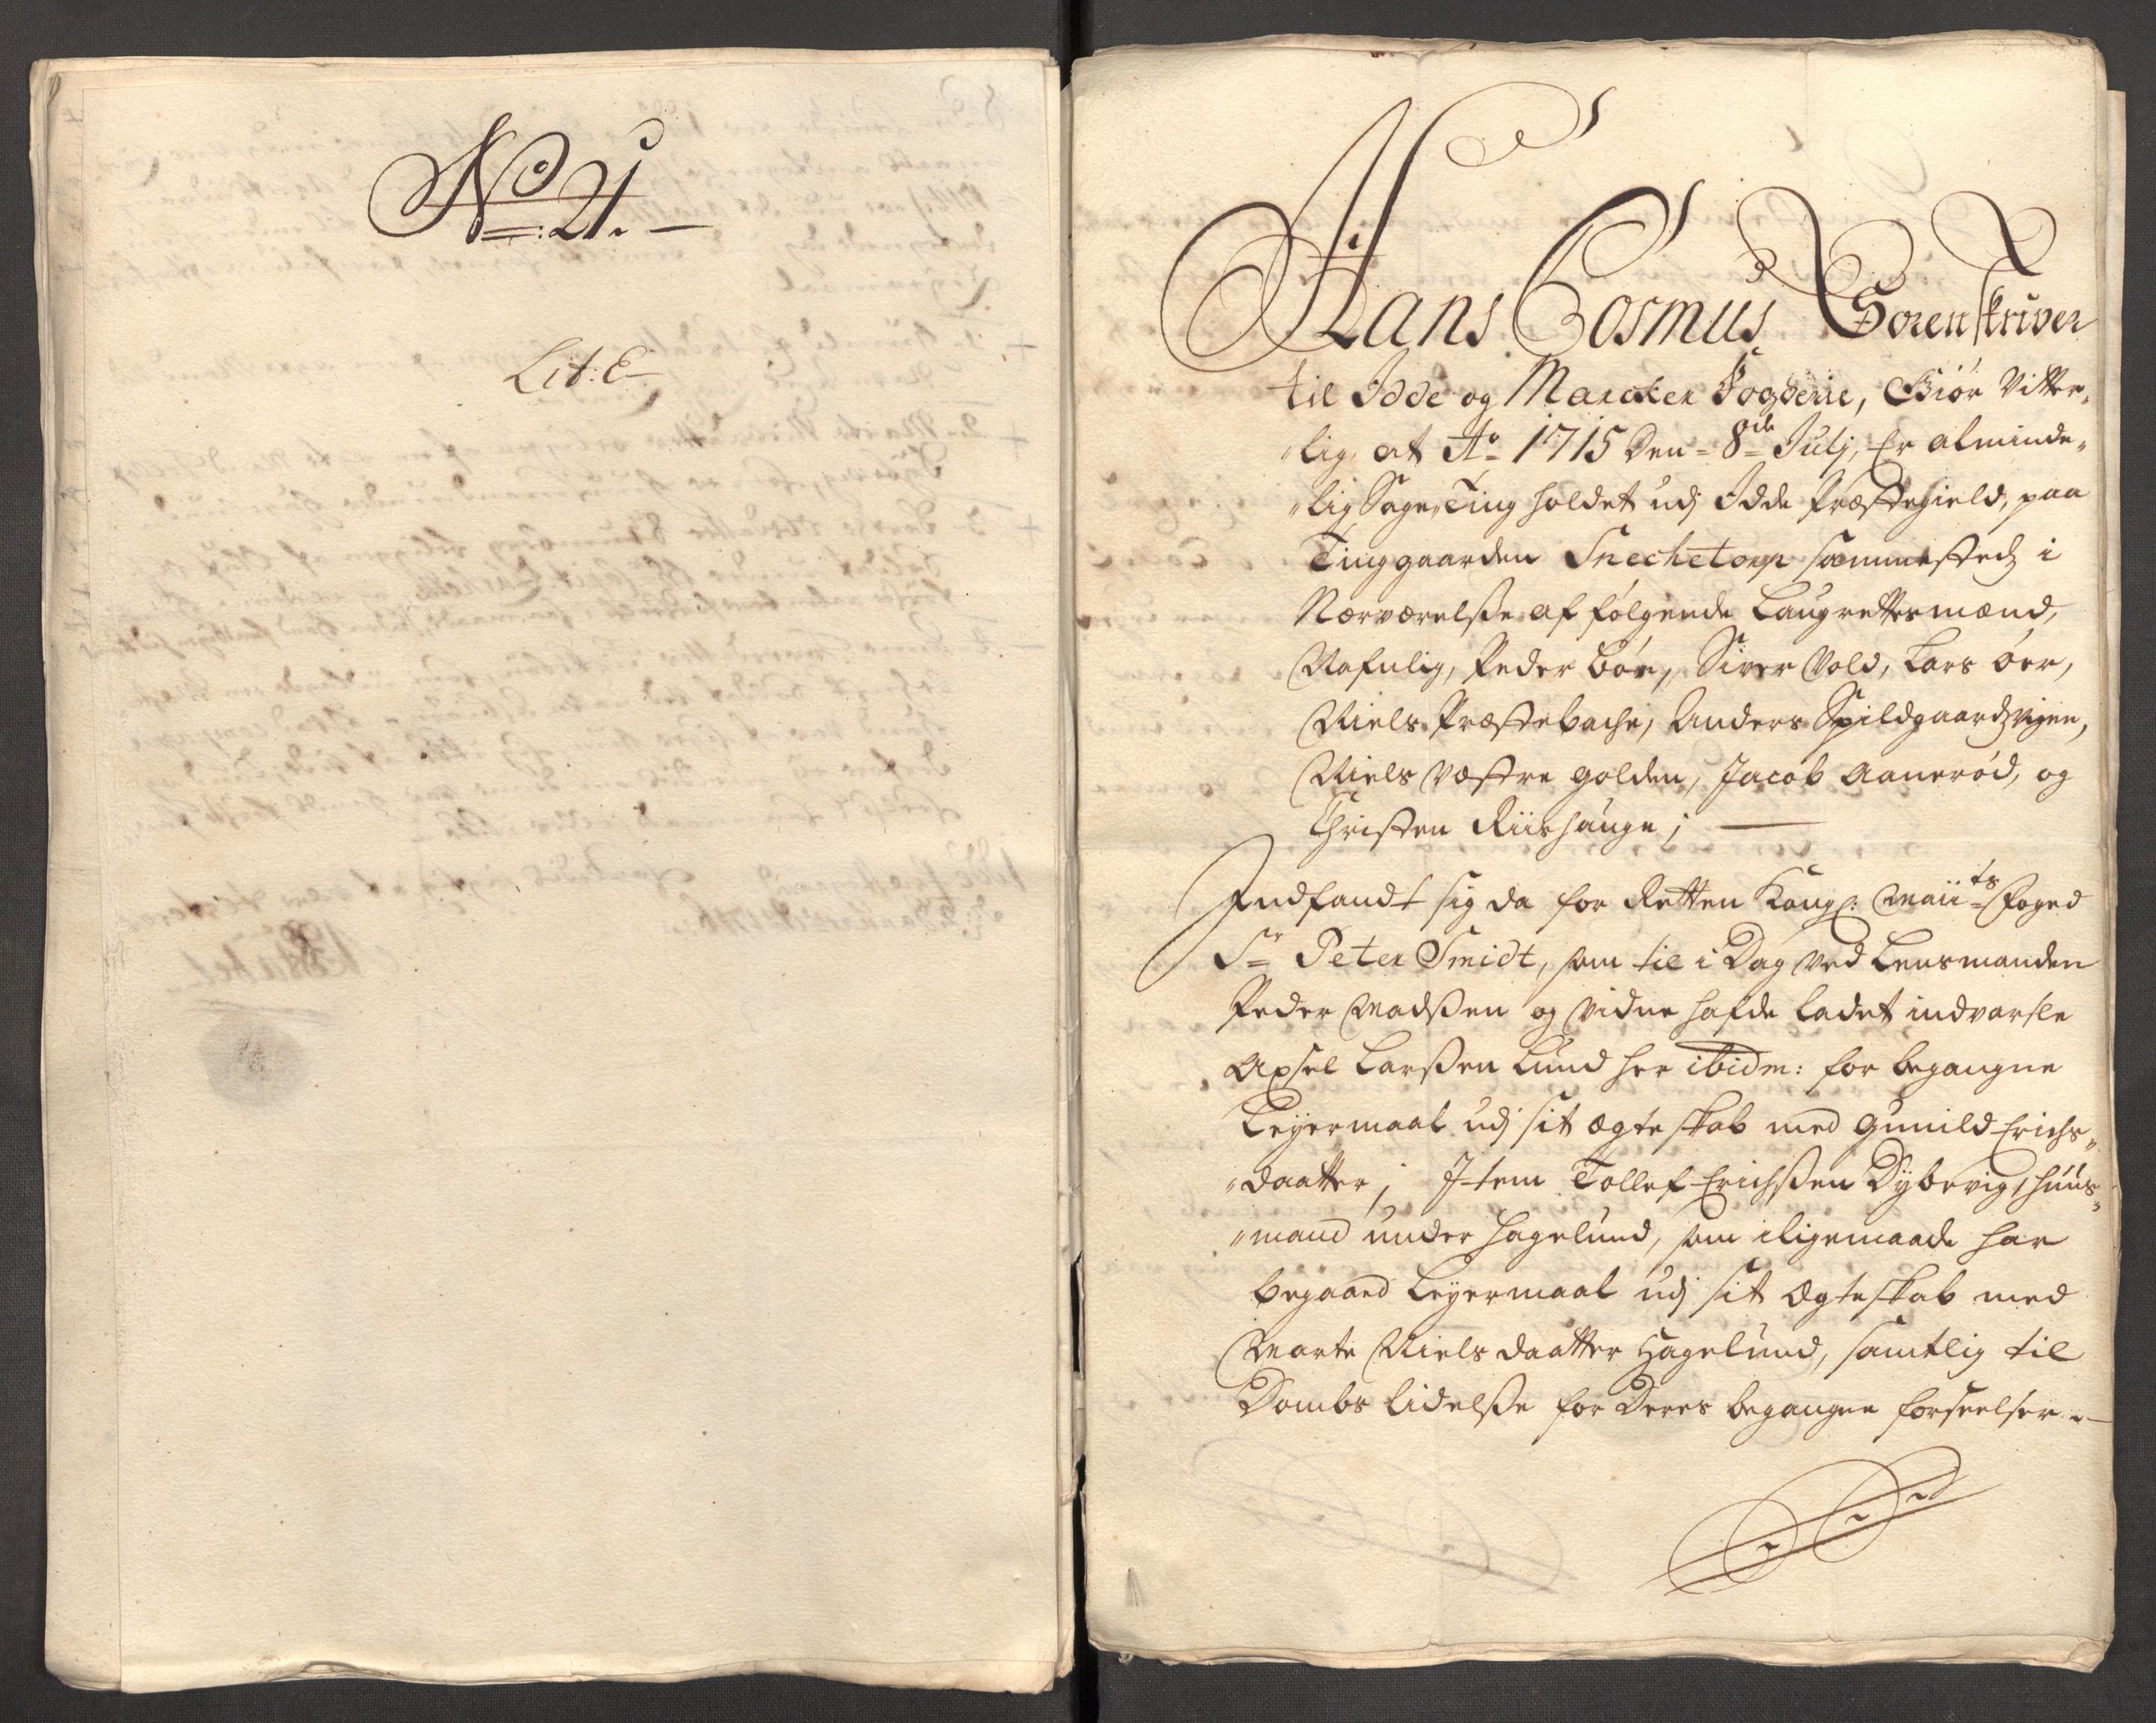 No: 21.
Lit: E
Hans Cosmus Sorenskriver
til Idde og Marcker Fogderie, Giör Vitter„
„lig, at Ao 1715 Den 8de Julj, Er alminde„
„lig Sage Ting holdet udj Idde Præstegield, paa
Tinggaarden Snechetorp sammestedz i
Nærværelße af følgende Laugrettesmænd,
Nafnlig, Peder Böe, Siver Vold, Lars öer,
Niels Præstebache, Anders Spildgaardzvigen,
Niels Væstre golden, Jacob Aaneröd, og
Christen Riishauge;
Indfandt sig da for Retten Kongl: Maiits Foged
Sr Peter Smidt, som til i Dag ved Lensmanden
Peder Madßen og Vidne hafde ladet indvarsle
Axsel Larßen Lund her ibidm: for begangne
Leyermaal udj sit ægteskab med Gunild Erichs„
„daatter; Item Tollef Erichßen Dybevig, huus„
„mand under Hagelund, som iligemaade har
begaaed Leyermaal udj sit Ægteskab med
Marte Niels daatter Hagelund, samtlig til
Dombs lidelße for Deres begangne forseelser